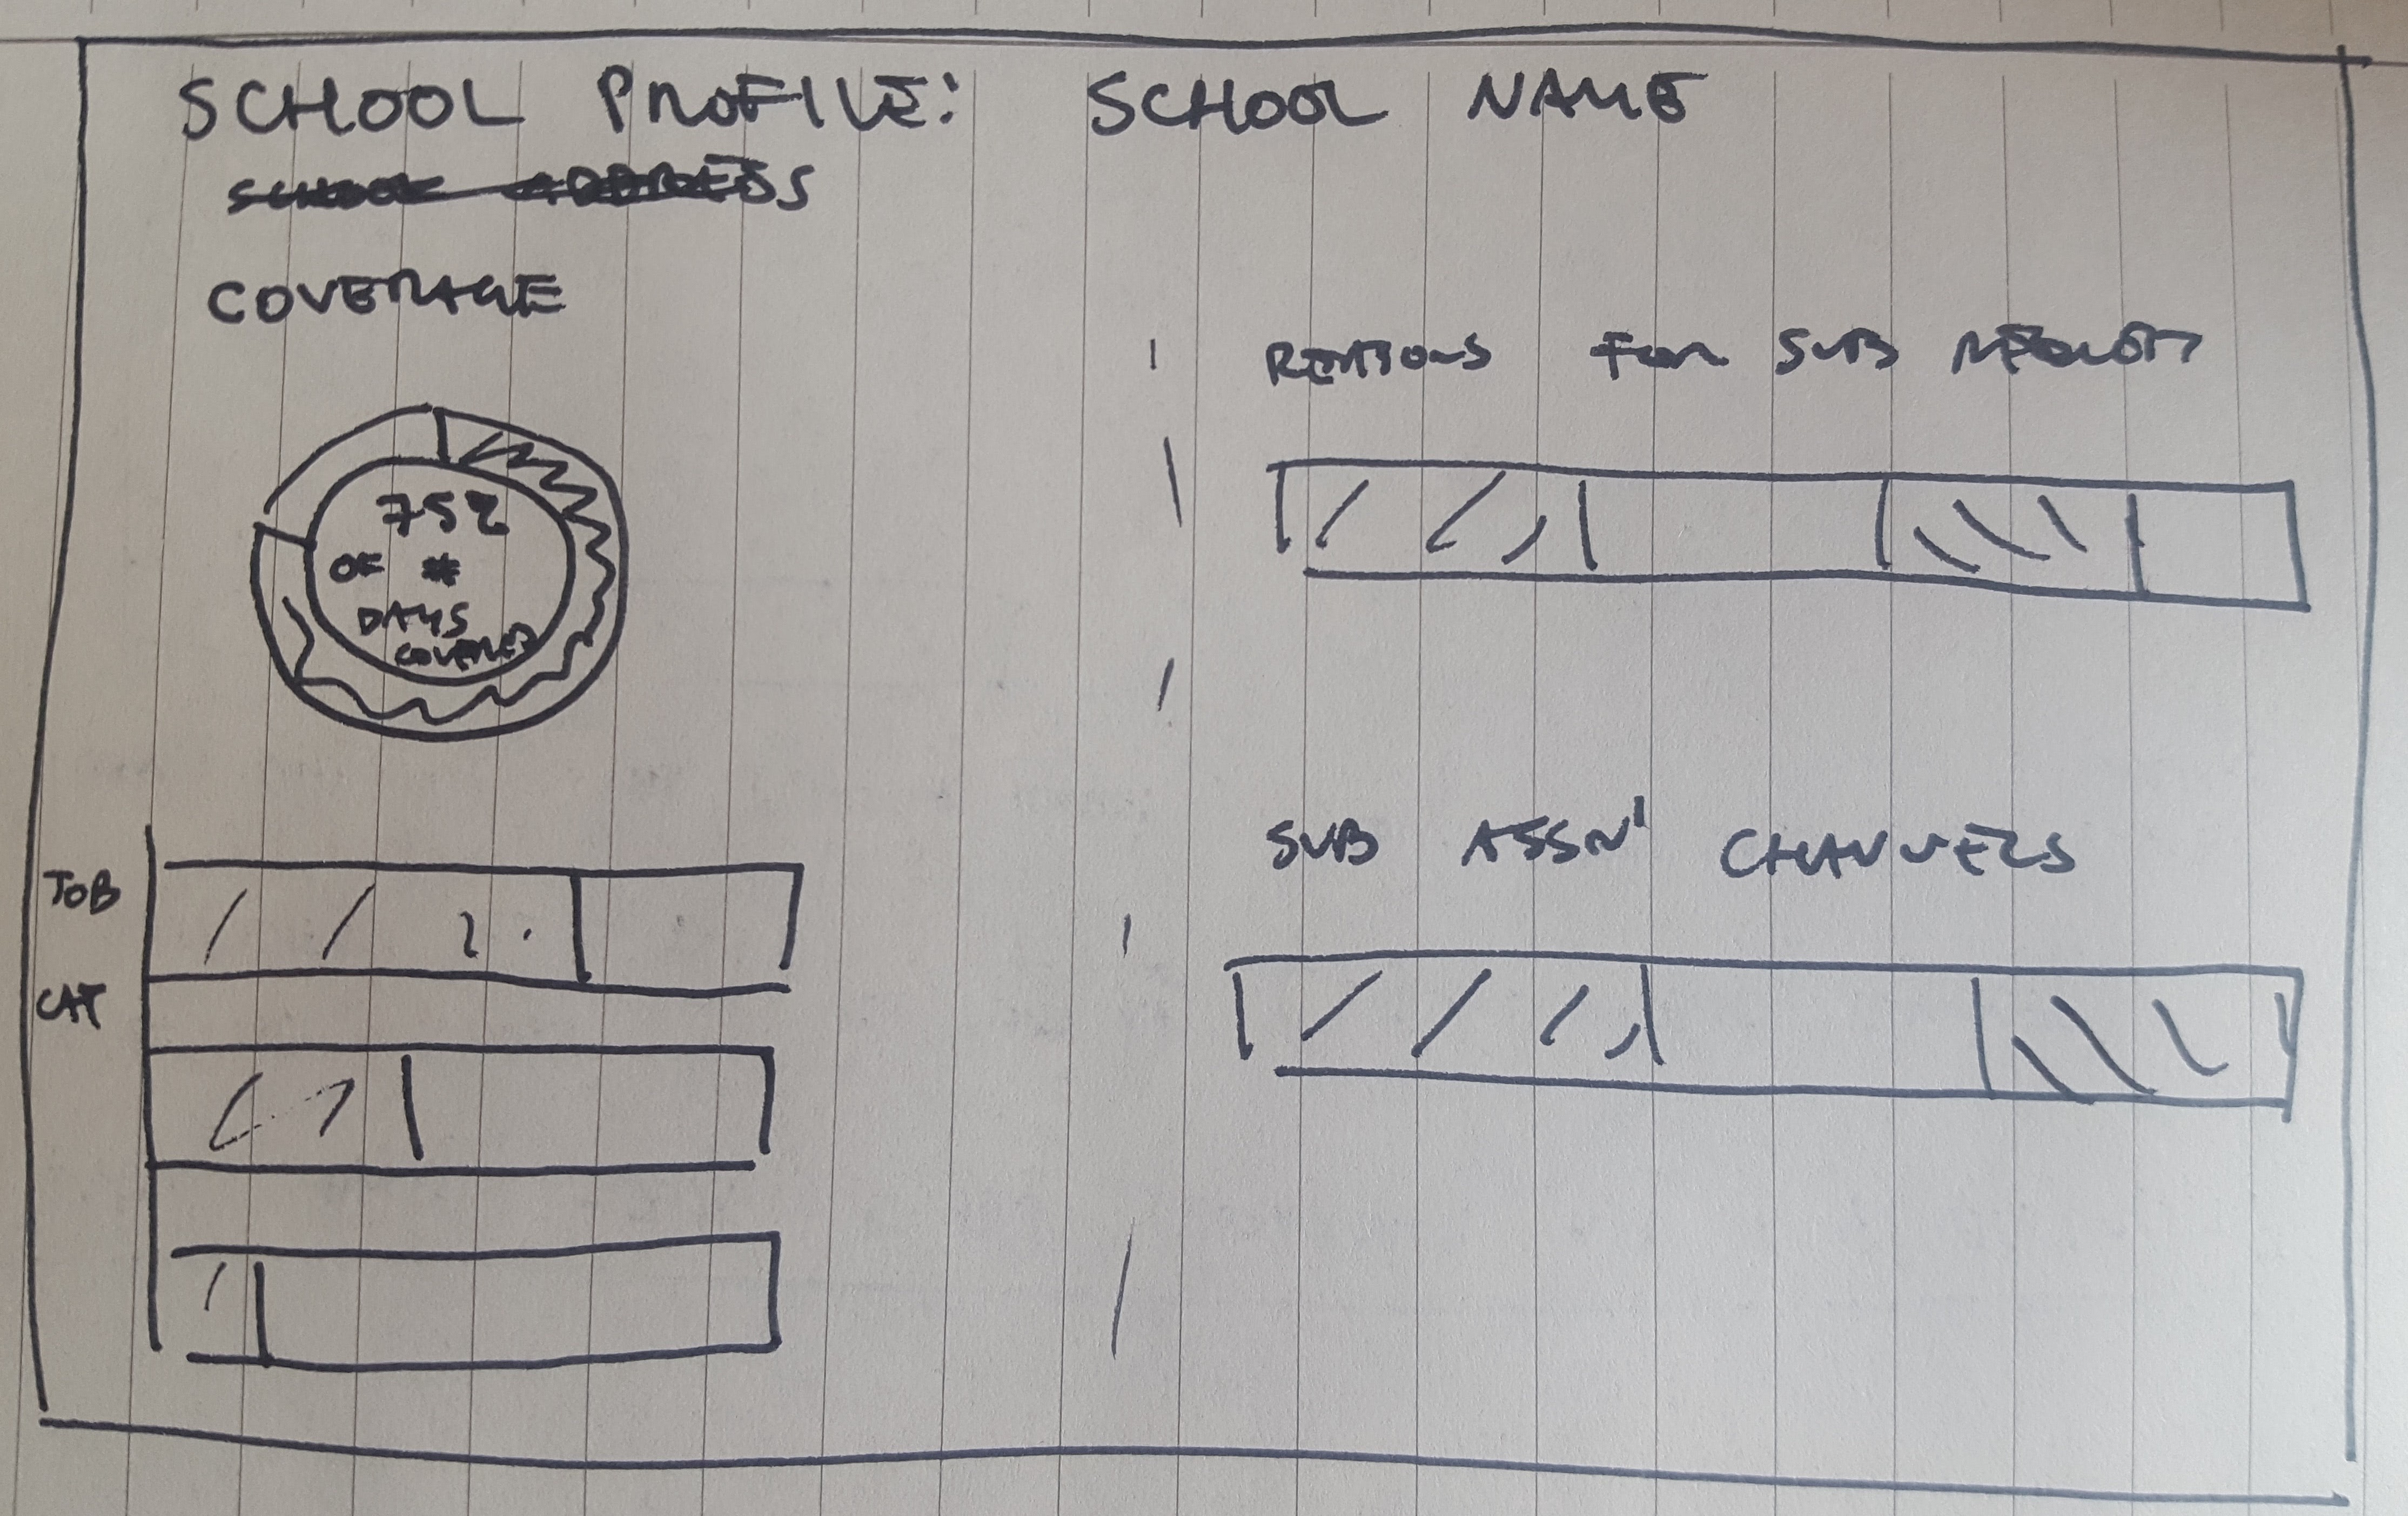 SCHOOL PROFILE: SCHOOL NAME
SCHOOL ADDRESS
COVERAGE
75%
OF #
DAYS
COVERED
JOB
CAT
REASONS FOR SUB REQUEST
SUB ASSN' CHANNELS